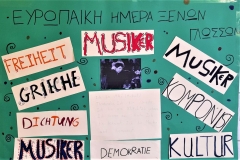 ΕΥΡΩΠΑΪΚΗ ΗΜΕΡΑ ΞΕΝΩΝ
ΓΛΩΣΣΩΝ
FREIHEIT
MUSIKER
MUSIKER
GRIECHE
KOMPONIST
DICHTUNG
MUSIKER
DEMOKRATIE
KULTUR